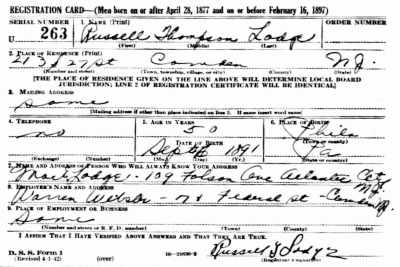 REGISTRATION CARD—(Men born on or after April 28, 1877 and on or before February 16, 1897)
SERIAL NUMBER 1. NAME (Print) ORDER NUMBER
U 263 Russell Thompson Lodge
(First) (Middle) (Last)
2. PLACE OF RESIDENCE (Print)
213 S 27 St Camden N.J.
(Number and street) (Town, township, village, or city) (County) (State)
[THE PLACE OF RESIDENCE GIVEN ON THE LINE ABOVE WILL DETERMINE LOCAL BOARD
JURISDICTION; LINE 2 OF REGISTRATION CERTIFICATE WILL BE IDENTICAL]
3. MAILING ADDRESS
Same
[Mailing address if other than place indicated on line 2. If same insert word same]
4. TELEPHONE 5. AGE IN YEARS 6. PLACE OF BIRTH
no 50 Phila
DATE OF BIRTH (Town or county)
Sept 1891 Pa
(Exchange) (Number) (Mo.) (Day) (Yr.) (State or country)
7. NAME AND ADDRESS OF PERSON WHO WILL ALWAYS KNOW YOUR ADDRESS
Lodge - 109 Folsom Ave Atlantic City N.J.
8. EMPLOYER'S NAME AND ADDRESS
Warren Watson - Federal St - Camden N.J.
9. PLACE OF EMPLOYMENT OR BUSINESS
Same
(Number and street or R. F. D. number) (Town) (County) (State)
I AFFIRM THAT I HAVE VERIFIED ABOVE ANSWERS AND THAT THEY ARE TRUE.
D. S. S. Form 1
(Revised 4-1-42) (over) Russell T Lodge
(Registrant's signature)